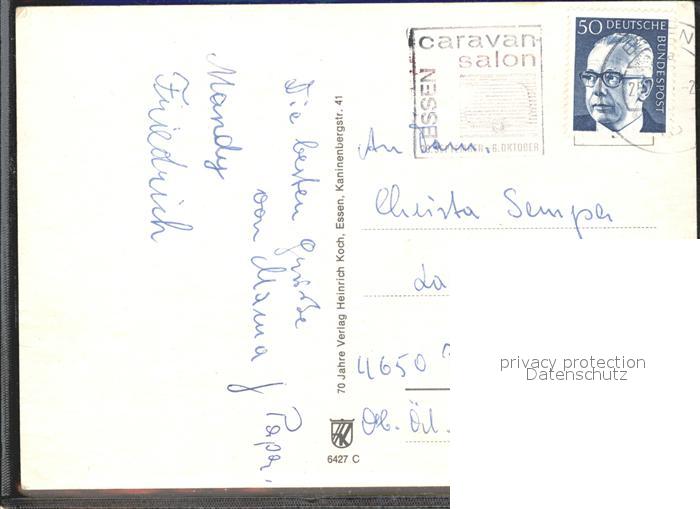 caravan-
salon
ESSEN
6. OKTOBER
50 DEUTSCHE
BUNDESPOST
An Fam.
Christa Semper
La
4650
Ob. Örl.
Die besten Grüße
von Mama / Papa,
Mandy
Friedrich
70 Jahre Verlag Heinrich Koch, Essen, Kaninenbergstr. 41
HK
6427 C
privacy protection
Datenschutz